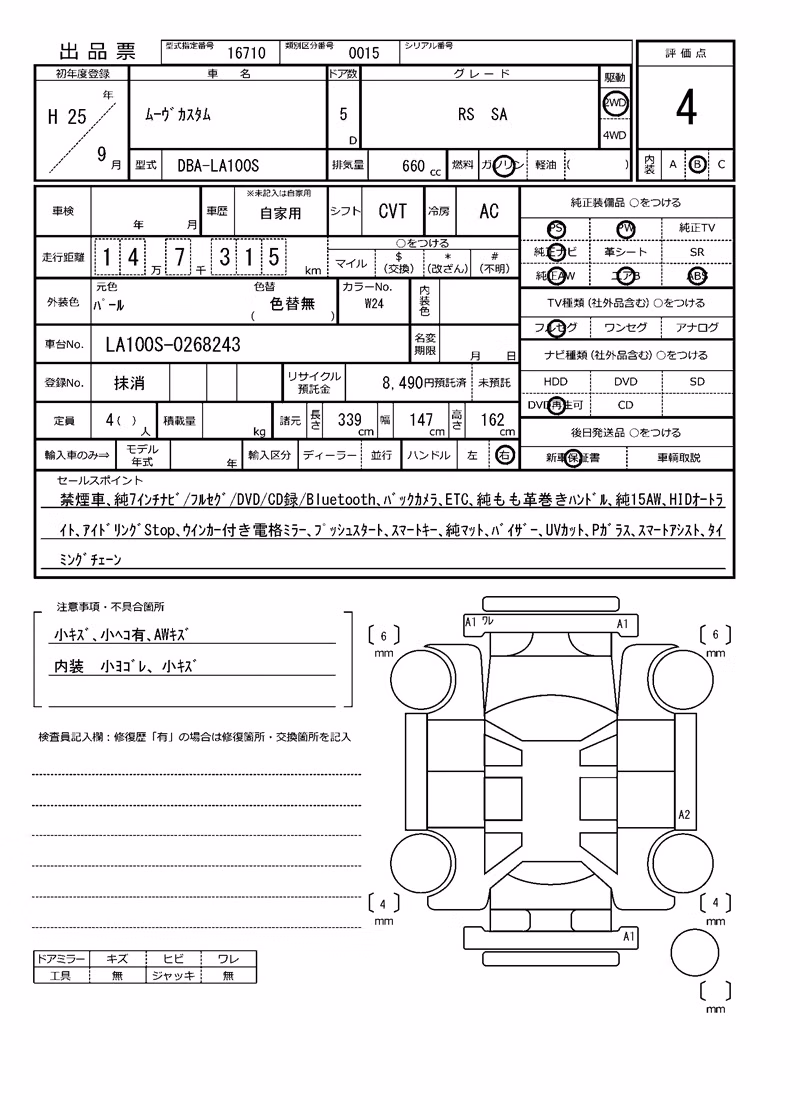 出品票 型式指定番号 16710 類別区分番号 0015 シリアル番号
評価点
初年度登録 車名 ドア数 グレード 駆動
H 25 年 ムーヴカスタム 5 D RS SA 2WD 4
9 月 4WD
型式 DBA-LA100S 排気量 660 cc 燃料 ガソリン 軽油 ( ) 内装 A B C
車検 年 月 車歴 ※未記入は自家用 自家用 シフト CVT 冷房 AC
走行距離 14万 7千 315 km ○をつける マイル $(交換) *(改ざん) #(不明)
外装色 元色 パール 色替 ( 色替無 ) カラーNo. W24 内装色
車台No. LA100S-0268243 名変期限 月 日
登録No. 抹消 リサイクル預託金 8,490円預託済 未預託
定員 4( ) 人 積載量 kg 諸元 長さ 339 cm 幅 147 cm 高さ 162 cm
輸入車のみ⇒ モデル年式 年 輸入区分 ディーラー 並行 ハンドル 左 右
純正装備品 ○をつける
PS PW 純正TV
純正ナビ 革シート SR
純正AW エアB ABS
TV種類(社外品含む)○をつける
フルセグ ワンセグ アナログ
ナビ種類(社外品含む)○をつける
HDD DVD SD
DVD再生可 CD
後日発送品 ○をつける
新車保証書 車輌取説
セールスポイント
禁煙車、純7インチナビ/フルセグ/DVD/CD録/Bluetooth、バックカメラ、ETC、純もも革巻きハンドル、純15AW、HIDオートラ
イト、アイドリングStop、ウインカー付き電格ミラー、プッシュスタート、スマートキー、純マット、バイザー、UVカット、Pガラス、スマートアシスト、タイ
ミングチェーン
注意事項・不具合箇所
小キズ、小ヘコ有、AWキズ
内装 小ヨゴレ、小キズ
検査員記入欄:修復歴「有」の場合は修復箇所・交換箇所を記入
ドアミラー キズ ヒビ ワレ
工具 無 ジャッキ 無
A1 ワレ A1
6 mm 6 mm
A2
4 mm 4 mm
A1
mm